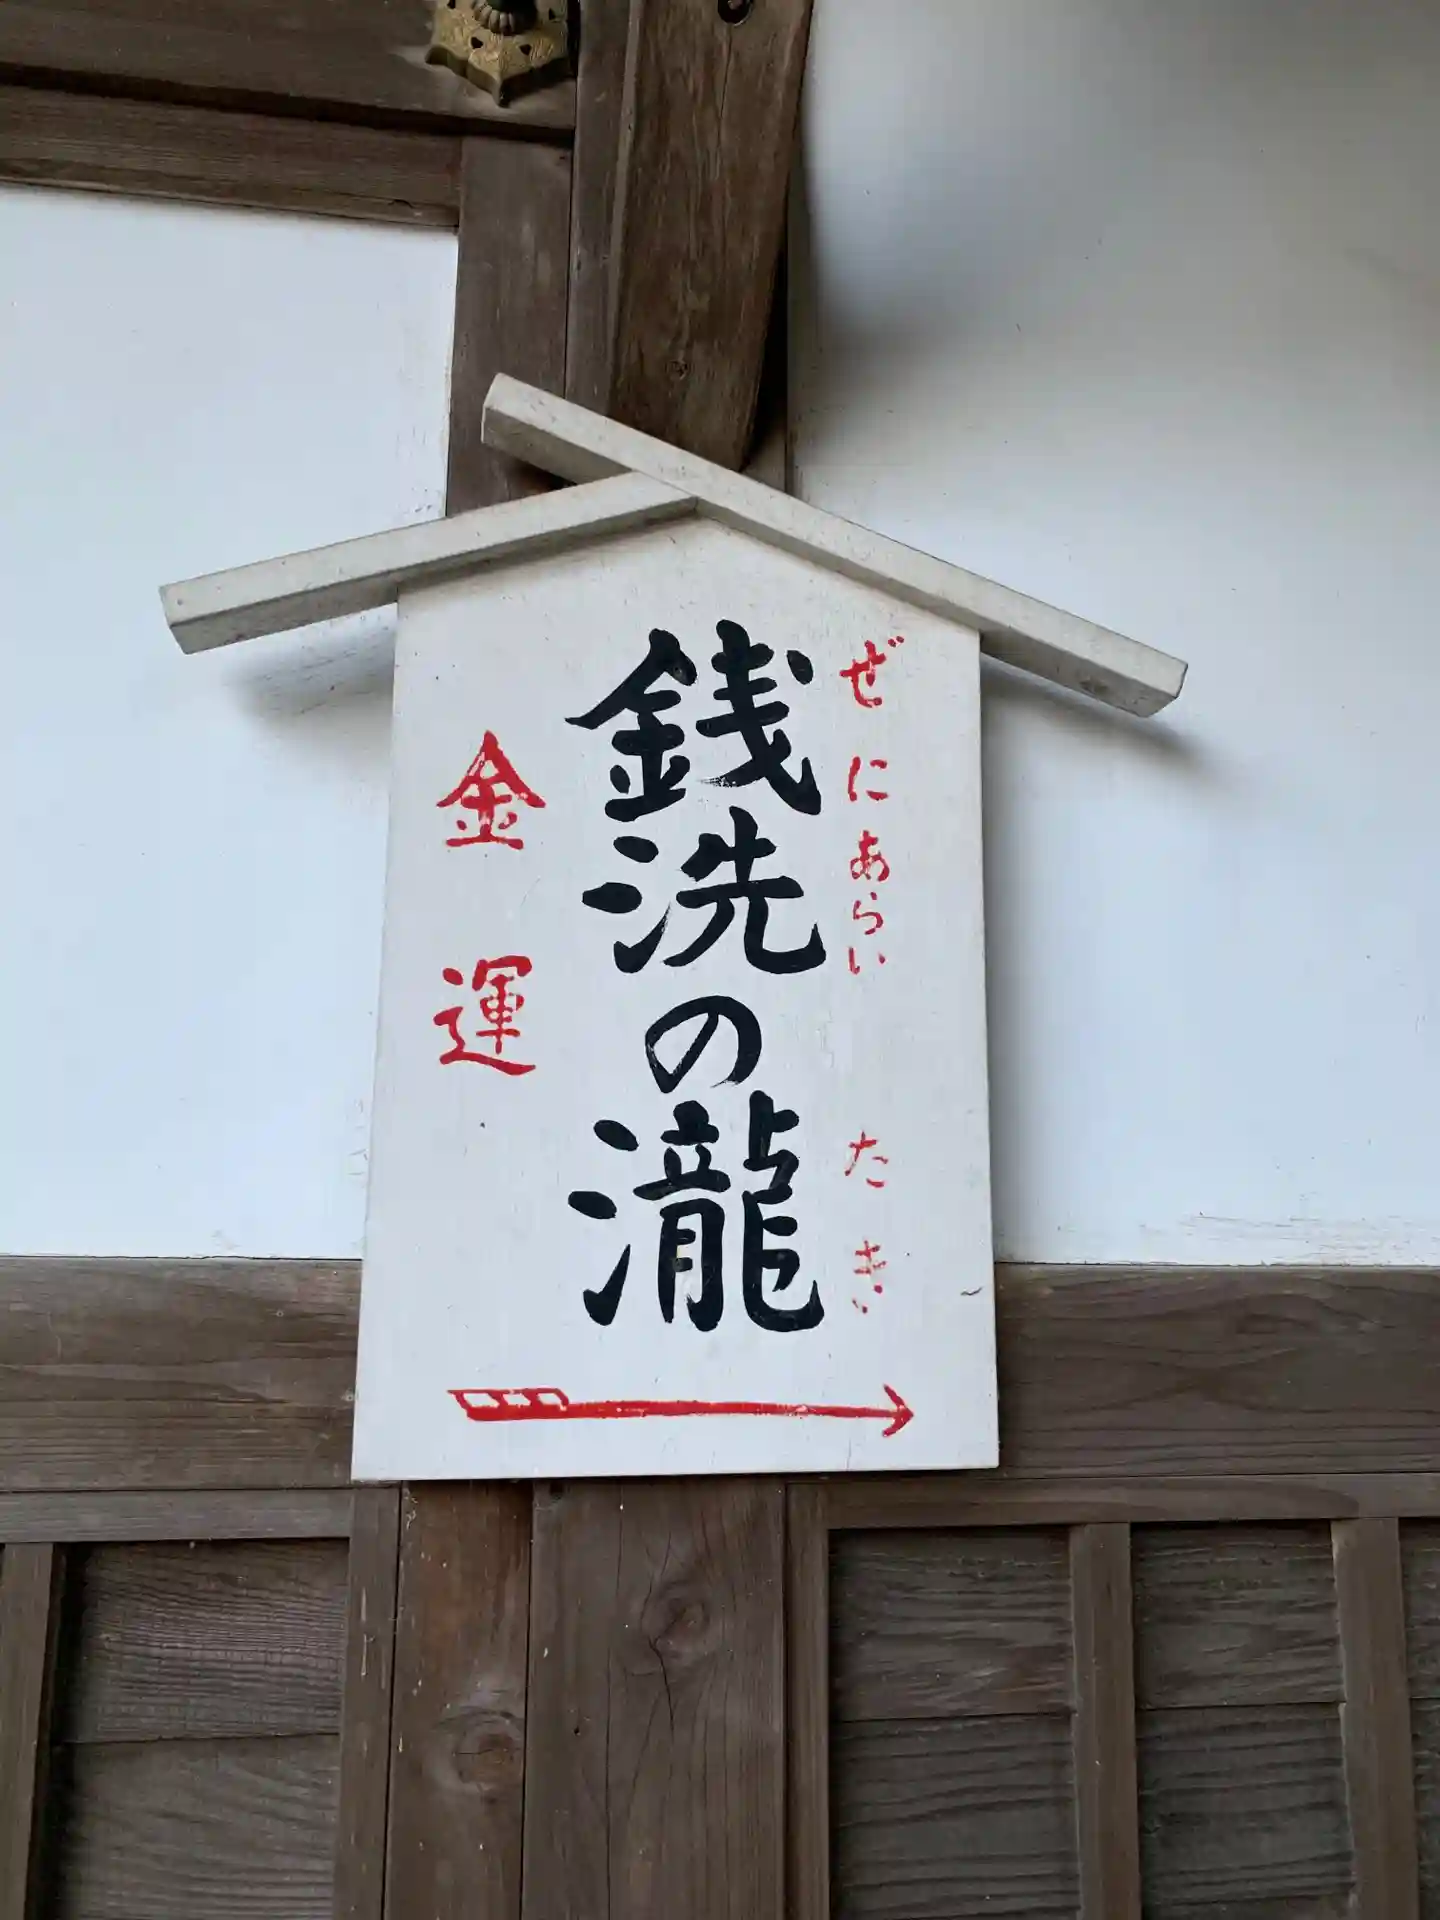 ぜにあらい たき
銭洗の瀧
金運